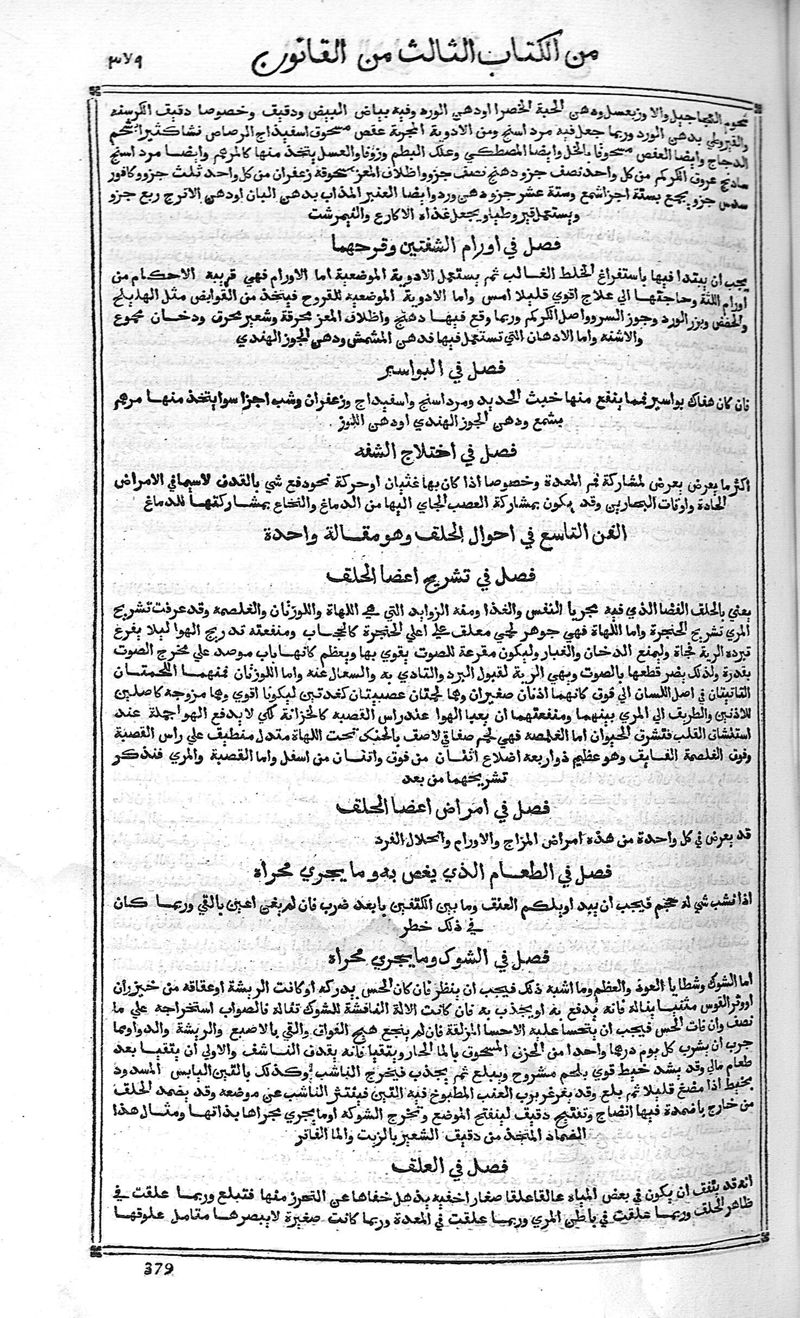 من الكتاب الثالث من القانون ٣٧٩
شحوم الدجاجيل والاوز بعسل ودهن الحبة الخضرا اودهن الورد وفيه بياض البيض ودقيق وخصوصا دقيق الكرسنه
والقيروطي بدهن الورد وربما جعل فيه مرد اسنج ومن الادوية المجربة عفص مسحوق اسفيذاج الرصاص نشا كثيرا شحم
الدجاج وايضا العفص مسحونا بالخل وايضا المصطكي وعلك البطم وزوفا والعسل يتخذ منها كالمرهم وايضا مرد اسنج
ساذنج عروق الكركم من كل واحد نصف جزو دهنج نصف جزو واظلاف المعز مسحوقة زعفران من كل واحد ثلث جزو وكافور
سدس جزو يجمع بستة اجزا شمع وستة عشر جزو دهن ورد وايضا العنبر المذاب بدهن البان اودهن الاترج ربع جزو
ويستعمل قيروطيا ويجعل غذاه الاكارع والنيمرشت
فصل في اورام الشفتين وقرحهما
يجب ان يبتدا فيها باستفراغ الخلط الغالب ثم يستعمل الادوية الموضعية اما الاورام فهي قريبه الاحكام من
اورام اللثة وحاجتها الي علاج اقوي قليلا امس واما الادوية الموضعيه للقروح فيتخذ من القوابض مثل الهليلج
والحضض وبزر الورد وجوز السرو واصل الكركم وربما وقع فيها دهنج واظلاف المعز محرقة وشعير محرق ودخان مجموع
والاشنه واما الادهان التي تستعمل فيها فدهن المشمش ودهن الجوز الهندي
فصل في البواسير
فان كان هناك بواسير فمما ينفع منها خبث الحديد ومرد اسنج واسفيداج وزعفران وشب اجزا سوا يتخذ منها مرهم
بشمع ودهن الجوز الهندي اودهن اللوز
فصل في اختلاج الشفه
اكثر ما يعرض يعرض لمشاركة فم المعدة وخصوصا اذا كان بها غثيان اوحركة نحو دفع شي بالقذف لاسيما في الامراض
الحادة واوقات البحارين وقد يكون بمشاركة العصب الجاي اليها من الدماغ والنخاع بمشاركتها للدماغ
الفن التاسع في احوال الحلق وهو مقالة واحدة
فصل في تشريح اعضا الحلق
يعني بالحلق الفضا الذي فيه مجريا النفس والغذا ومنه الزوايد التي هي اللهاة واللوزتان والغلصمه وقد عرفت تشريح
المري تشريح الحنجرة واما اللهاة فهي جوهر لحمي معلق علي اعلي الحنجرة كالحجاب ومنفعته تدريج الهوا ليلا يقرع
ببرده الرية فجاة وليمنع الدخان والغبار وليكون مقرعة للصوت يقوي بها ويعظم كانها باب موصد علي مخرج الصوت
بقدرة ولذلك يضر قطعها بالصوت ويهي الرية لقبول البرد والتاذي به والسعال عنه واما اللوزتان فهما اللحمتان
الناتيتان في اصل اللسان الي فوق كانهما اذنان صغيران وهما لحمتان عصبيتان كغدتين ليكونا اقوي وهما مزوجه كاصلين
للاذنين والطريق الي المري بينهما ومنفعتهما ان يعبيا الهوا عند راس القصبه كالخزانة لكي لا يدفع الهوا جملة عند
استنشاق القلب فتشرق الحيوان اما الغلصمه فهي لحم صفاقي لاصق بالحنك تحت اللهاة متدل منطبق علي راس القصبة
وفوق الغلصمة الفايق وهو عظيم ذو اربعه اضلاع اثنان من فوق واثنان من اسفل واما القصبة والمري فنذكر
تشريحهما من بعد
فصل في امراض اعضا الحلق
قد يعرض في كل واحدة من هذه امراض المزاج والاورام وانحلال الفرد
فصل في الطعام الذي يغص به وما يجري مجراه
اذا نشب شي له حجم فيجب ان يبدا ويلكم العنق وما بين الكتفين يا بعد ضرب فان لم يغن اعين بالقي وربما كان
في ذلك خطر
فصل في الشوك وما يجري مجراه
اما الشوك وشظايا العود والعظم وما اشبه ذلك فيجب ان ينظر فان كان الحس يدركه او كانت الريشة اوعقافه من خيزران
اووتر القوس مثنيا يناله فانه يدفع به اويجذب به فان كانت الالة الناقشة للشوك تناله فالصواب استخراجه علي ما
نصف وان فات الحس فيجب ان يتحسا عليه الاحسا المزلقة فان لم ينجع هيج الفواق والقي بالاصبع والريشة والدوا ومما
جرب ان يشرب كل يوم درهما واحدا من الحرف المسحوق بالما الحار ويتقيا فانه يقذف الناشف والاولي ان يتقيا بعد
طعام مالي وقد يشد خيط قوي بلحم مشروح ويبلع ثم يجذب فيخرج الناشب وكذلك بالتين اليابس المسدود
بخيط اذا مضغ قليلا ثم بلع وقد يغرغر برب العنب المطبوخ فيه التين فينتثر الناشب عن موضعه وقد يضمد الحلق
من خارج باضمدة فيها انضاج وتفتيح دقيق لينفتح الموضع وتخرج الشوكه اوما يجري مجراها بذاتها ومثال هذا
الضماد المتخذ من دقيق الشعير بالزيت والما الفاتر
فصل في العلق
انه قد يتفق ان يكون في بعض المياه عالقا علقا صغار اخفيه يذهل خفاها عن التحرز منها فتبلع وربما علقت في
ظاهر الحلق وربما علقت في باطن المري وربما علقت في المعدة وربما كانت صغيرة لا يبصرها متامل علوقها
379